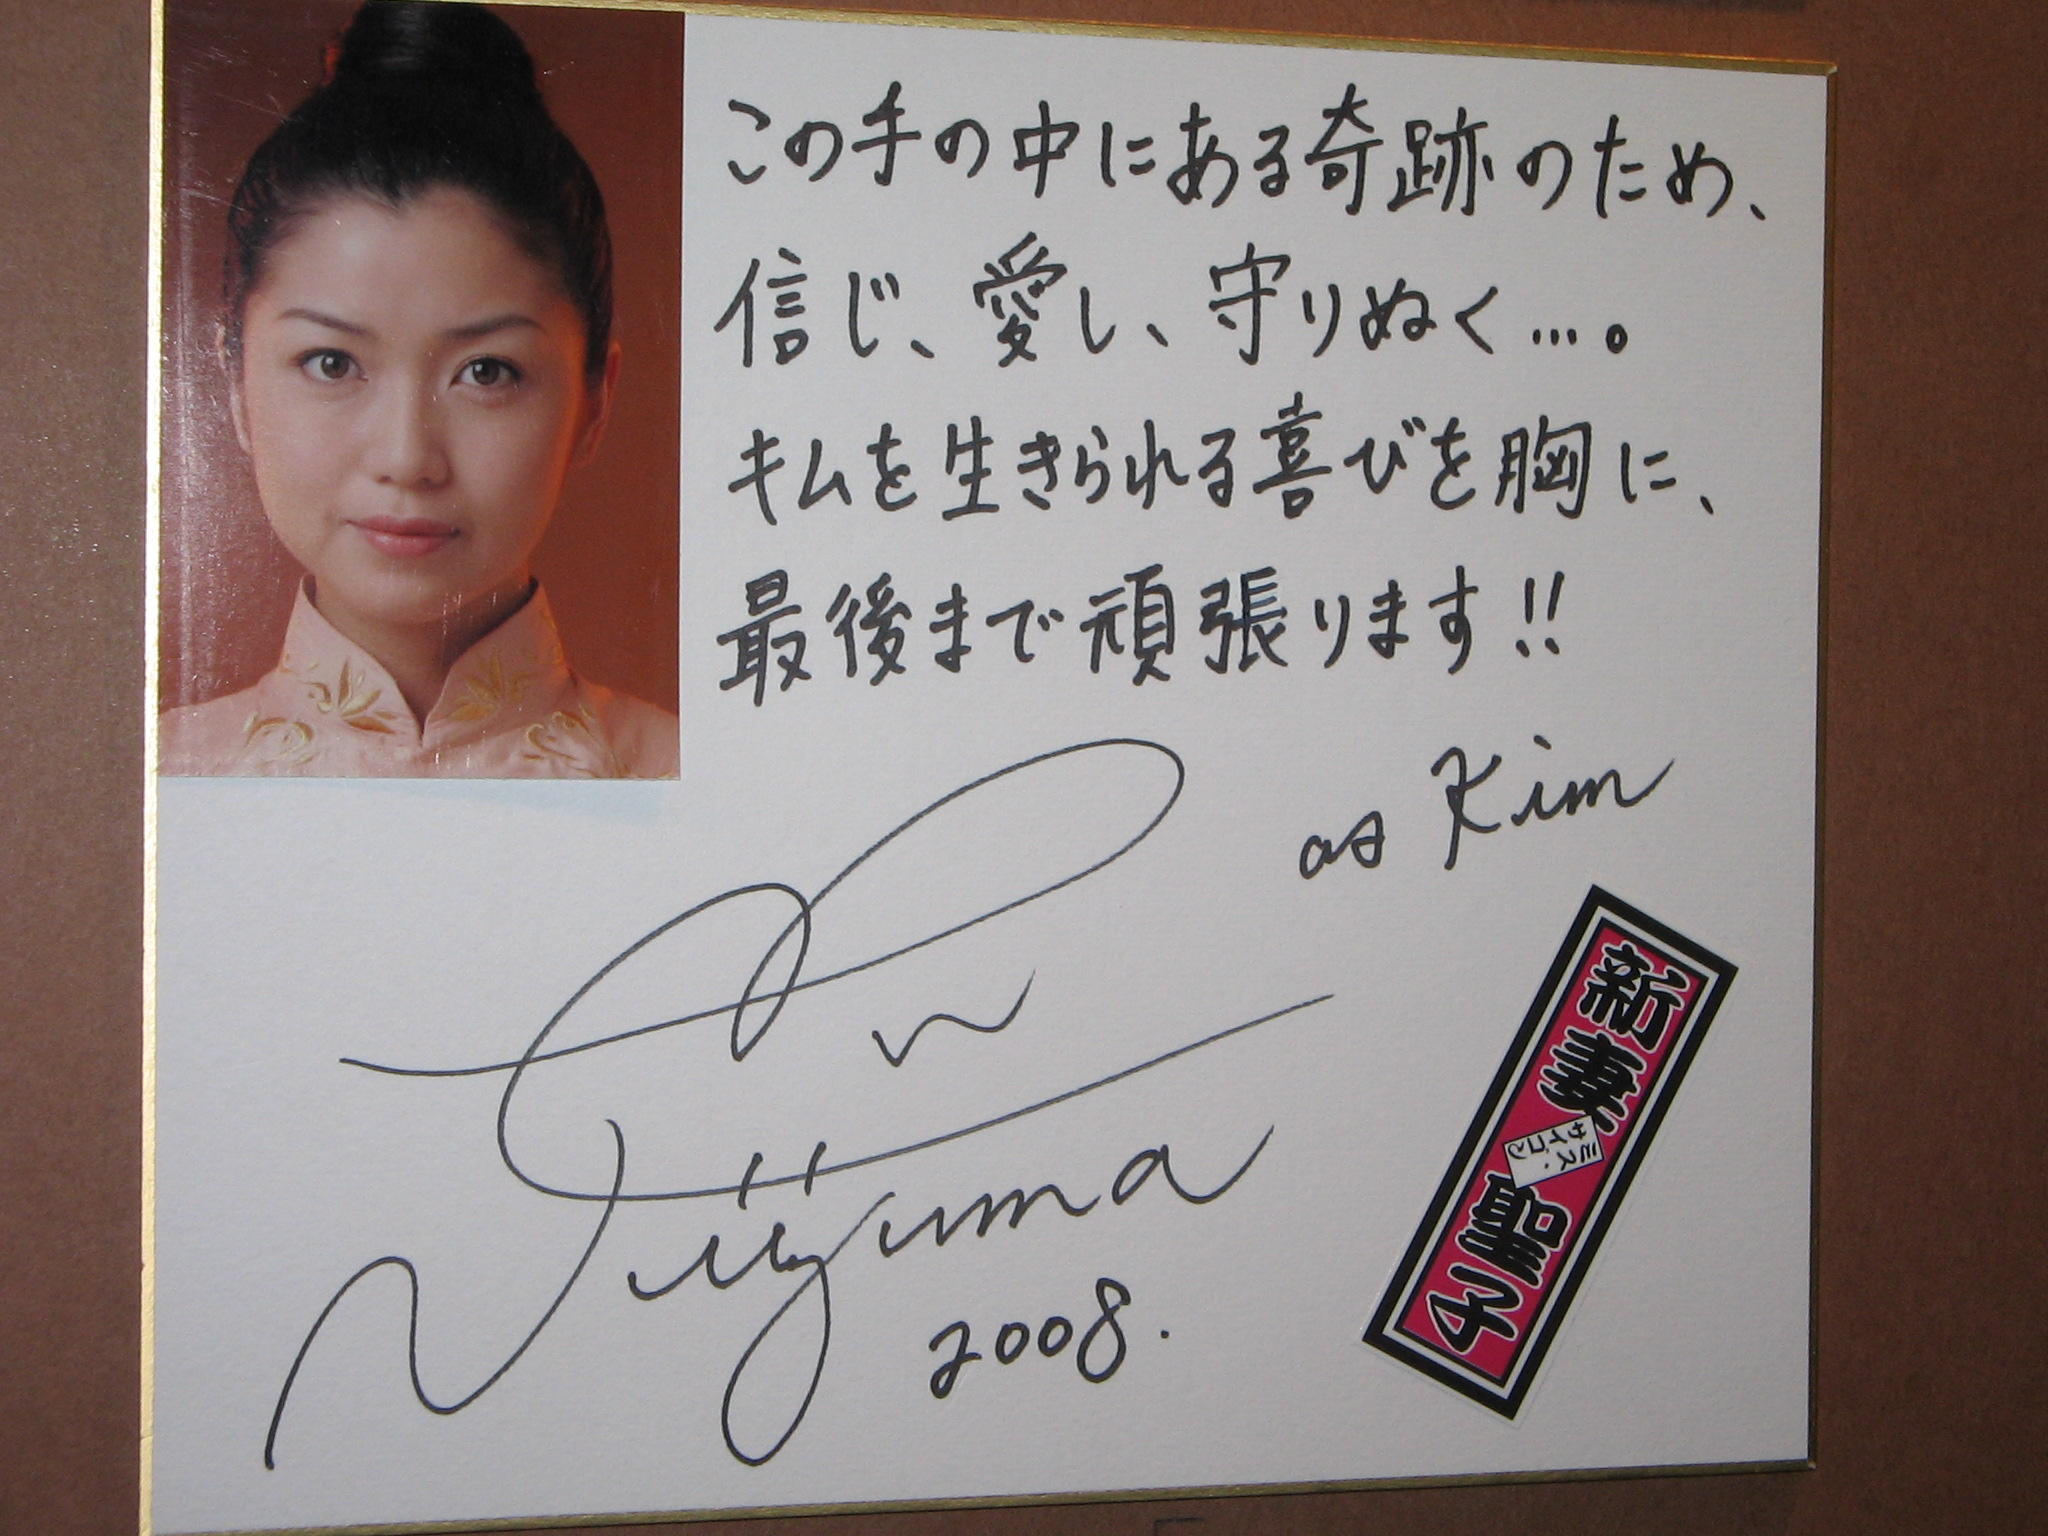 この手の中にある奇跡のため、
信じ、愛し、守りぬく…。
キムを生きられる喜びを胸に、
最後まで頑張ります!!
as Kim
Niizuma
2008.
新妻
ミス・
サイゴン
聖子